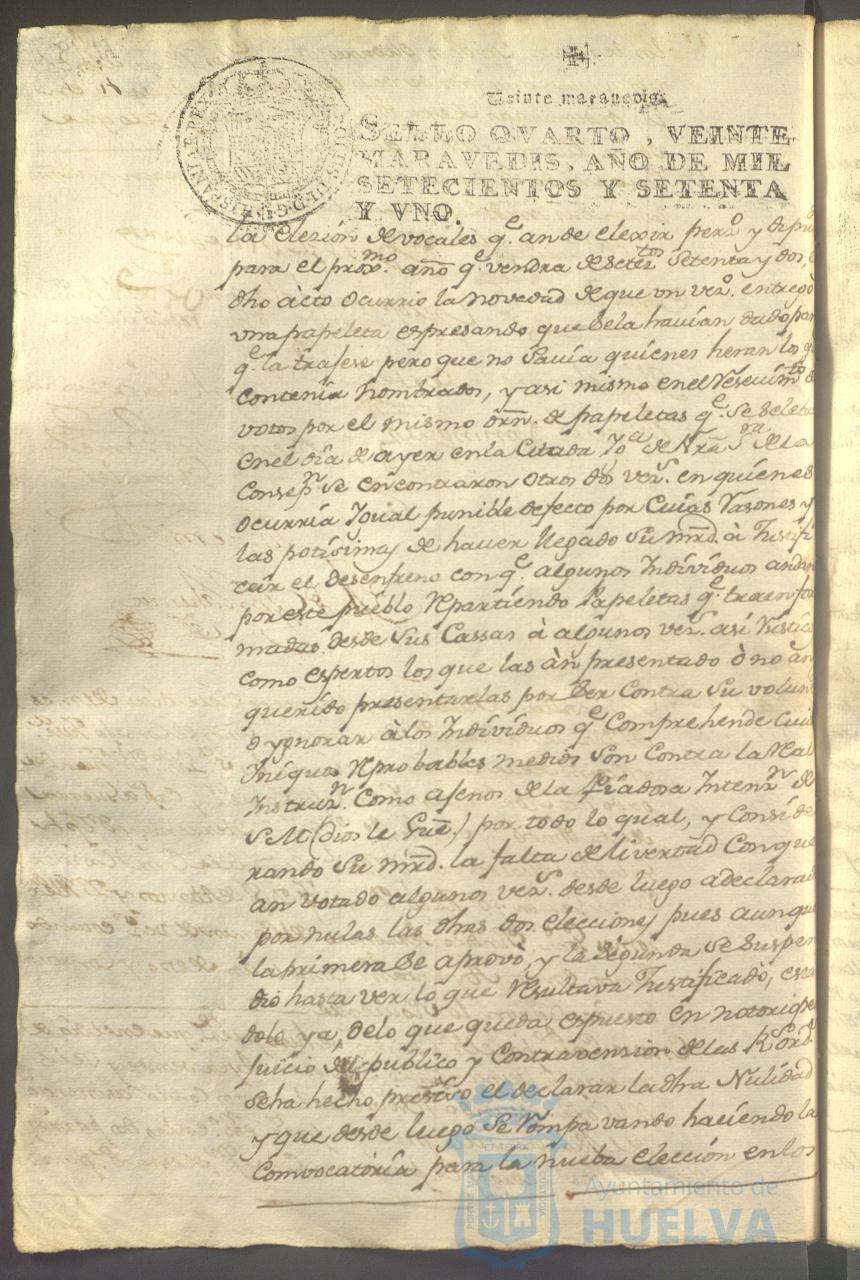 Veinte maravedis.
SELLO QVARTO, VEINTE
MARAVEDIS, AÑO DE MIL
SETECIENTOS Y SETENTA
Y VNO.
la elezión de vocales q.e an de elexir perz.o y dipu
para el prox.mo año q.e vendra de setez.tos setenta y dos,
dho àcto ocurrio la novedad de que un vez.o entregò
una papeleta expresando que se la havian dado par
q.e la trajese pero que no savia quienes heran los q.e
contenía nombrados, y asi mismo en el reseuim.to de
votos por el mismo orñ. de papeletas q.e se selebr
en el día de ayer en la citada Yg.a de Nrã S.ra de la
Consep.n se encontraron otros dos vez.s en quienes
ocurría igual punible defecto por cuias rasones y
las potísimas de haver llegado su mrd. à justifi
car el desenfreno con q.e algunos individuos andan
por este pueblo repartiendo papeletas q.e traen for
madas desde sus cassas à algunos vez.s así rústicos
como espertos los que las àn presentado ò no àn
querido presentarlas por ser contra su volunt
o ygnorar à los individuos q.e comprehende cuios
iniquos reprobables medios son contra la Real
instruz.n como ajenos de la piadosa intenz.n de
S M (Dios le Gue.) por todo lo qual, y conside
rando su mrd. la falta de livertad con que
an votado algunos vez.s desde luego a declarad
por nulas las dhas dos elecciones pues aunque
la primera se aprovò, y la segunda se suspen
dio hasta ver lo que resultava justificado, esta
dolo ya, de lo que queda espuesto en notorio per
juicio del público y contravension de las R.s ord.s
se ha hecho preciso el declarar la dha nulidad
y que desde luego se rompa vando haciendo la
convocatoria para la nueba elección en los
Ayuntamiento de
HUELVA